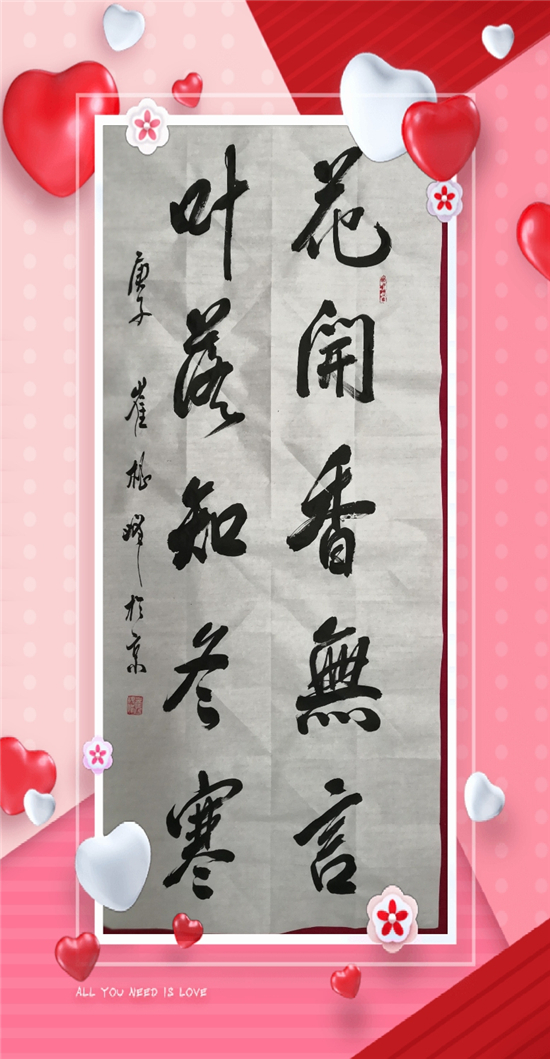 花開香無言
叶落知冬寒
庚子 崔柏 於京
ALL YOU NEED IS LOVE